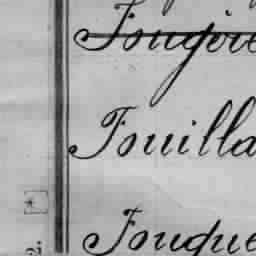 Fougère
Fouilla
Fouque